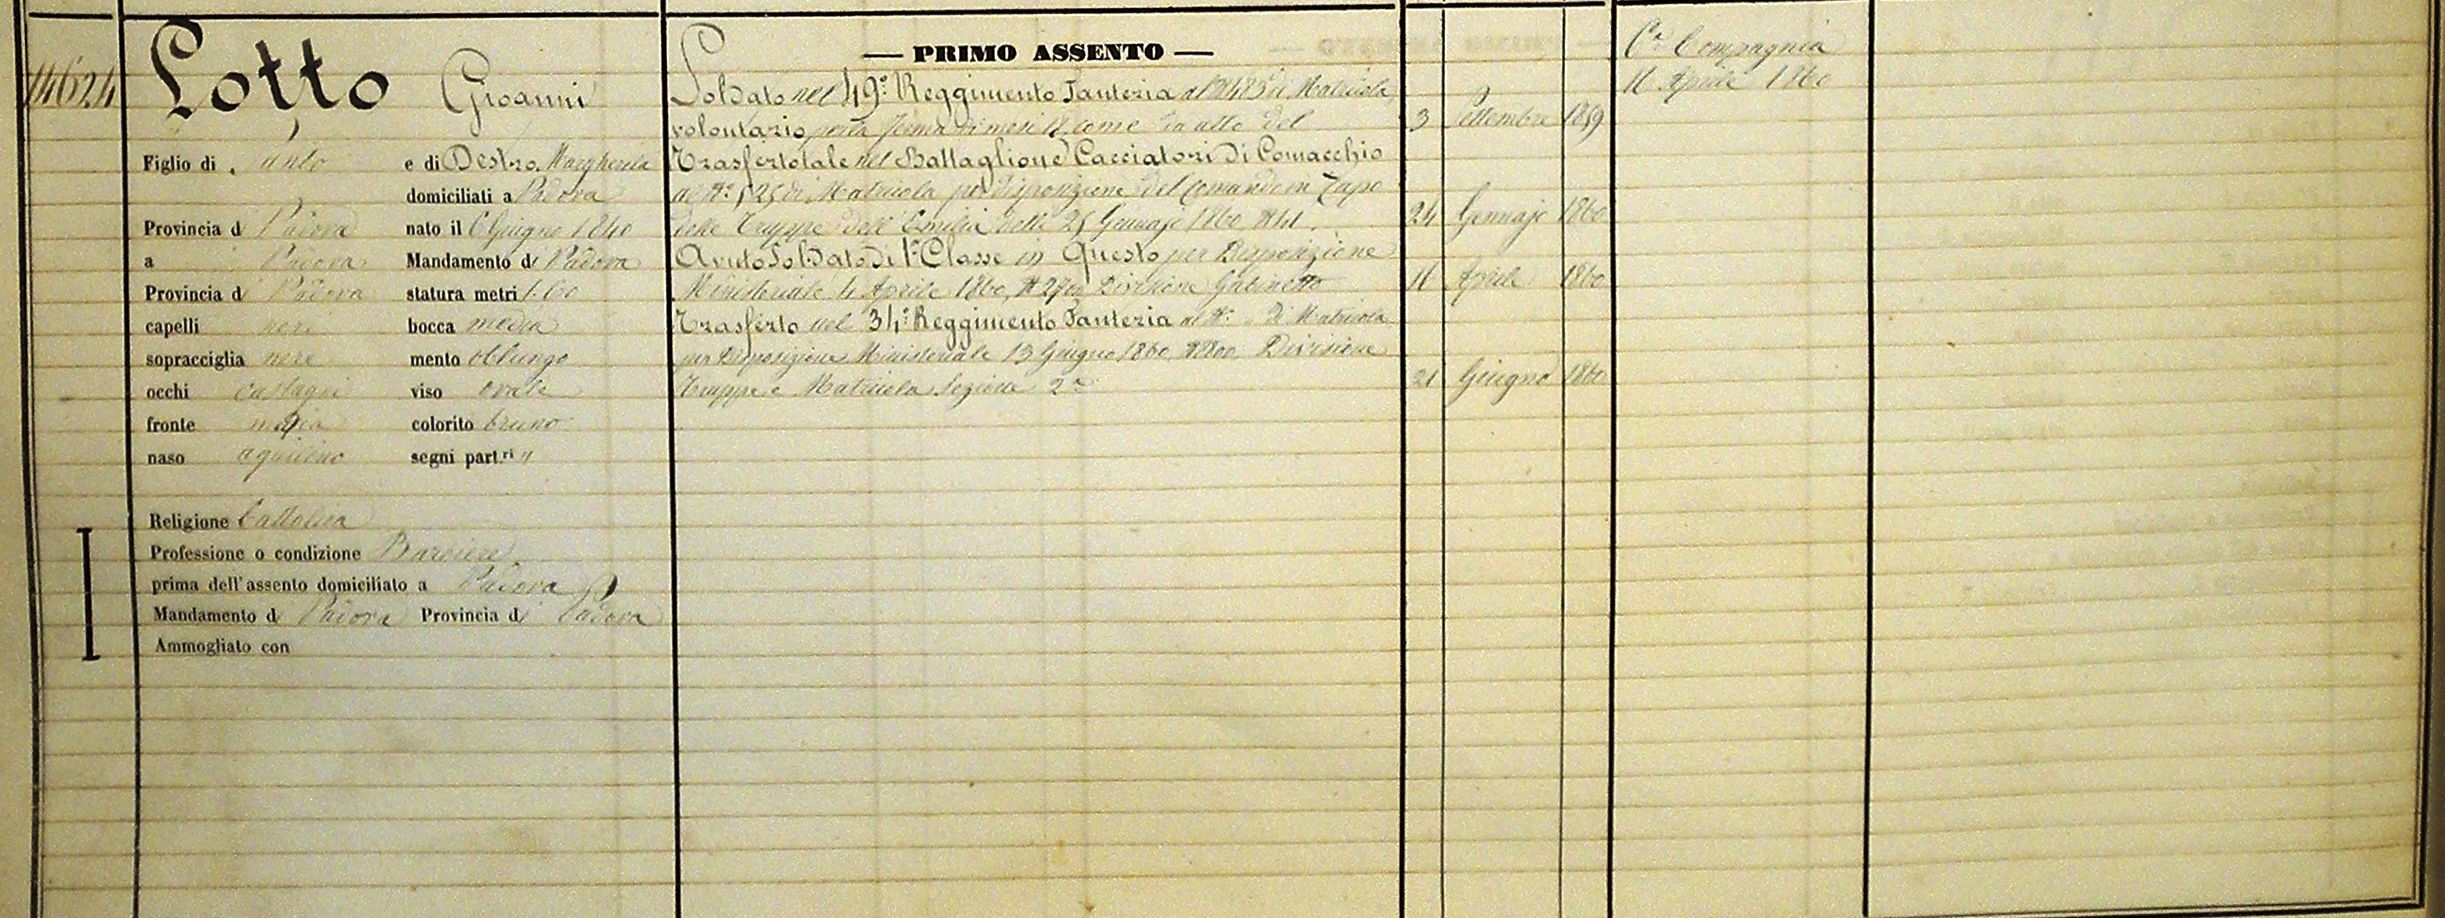 14624
Lotto Gioanni
Figlio di Santo e di Destro Margherita
domiciliati a Padova
Provincia di Padova nato il 6 Giugno 1840
a Padova Mandamento di Padova
Provincia di Padova statura metri 1.60
capelli neri bocca media
sopracciglia nere mento oblungo
occhi castagni viso ovale
fronte media colorito bruno
naso aquilino segni part.ri "
Religione Cattolica
Professione o condizione Barbiere
prima dell'assento domiciliato a Padova
Mandamento di Padova Provincia di Padova
Ammogliato con
— PRIMO ASSENTO —
Soldato nel 49° Reggimento Fanteria al di Matricola
volontario per la ferma di mesi 18 come da atto del 3 Settembre 1859
Trasferto tale nel Battaglione Cacciatori di Comacchio
al N° 525 di Matricola per disposizione del Comando in Capo
delle Truppe dell'Emilia delli 25 Gennajo 1860 N 41. 24 Gennajo 1860
Avuto Soldato di 1a Classe in Questo per Disposizione
Ministeriale 4 Aprile 1860, Divisione Gabinetto 16 Aprile 1860
Trasferto nel 34° Reggimento Fanteria al N° di Matricola
per Disposizione Ministeriale 13 Giugno 1860 N 800 Divisione
Truppe e Matricola Sezione 2a 21 Giugno 1860
6a Compagnia
16 Aprile 1860